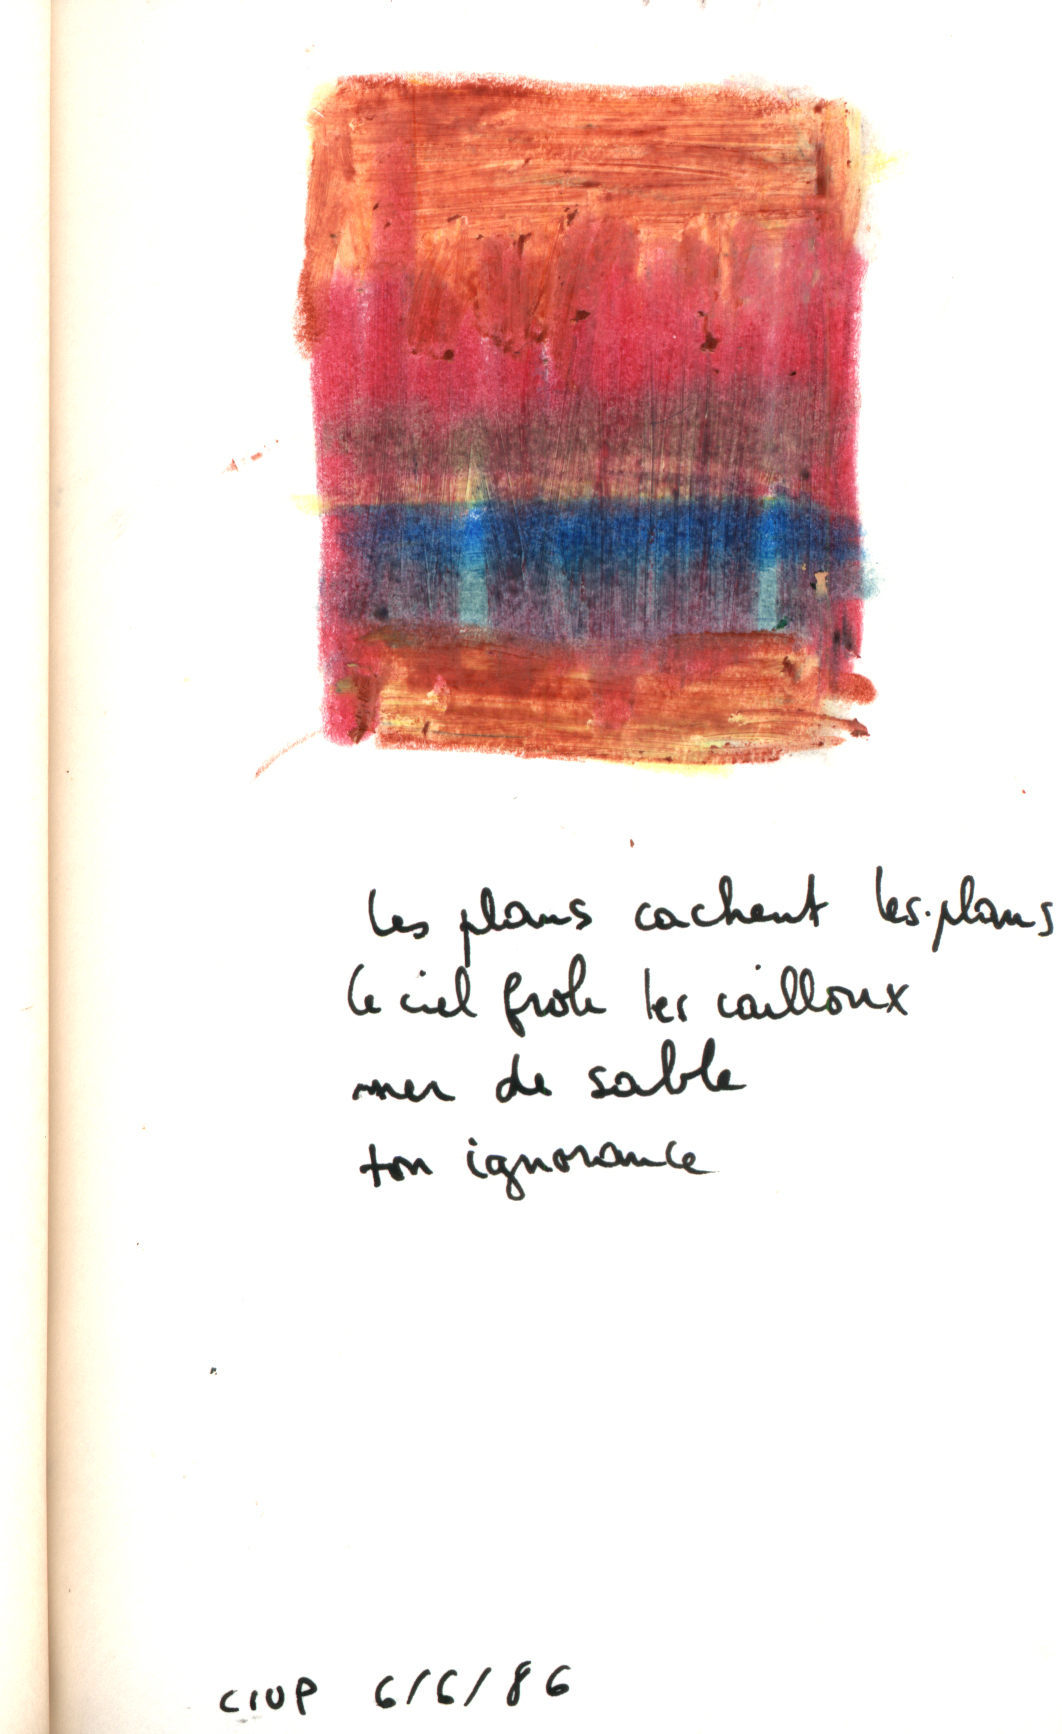 les plans cachent les plans
le ciel frole les cailloux
mer de sable
ton ignorance
CIUP 6/6/86